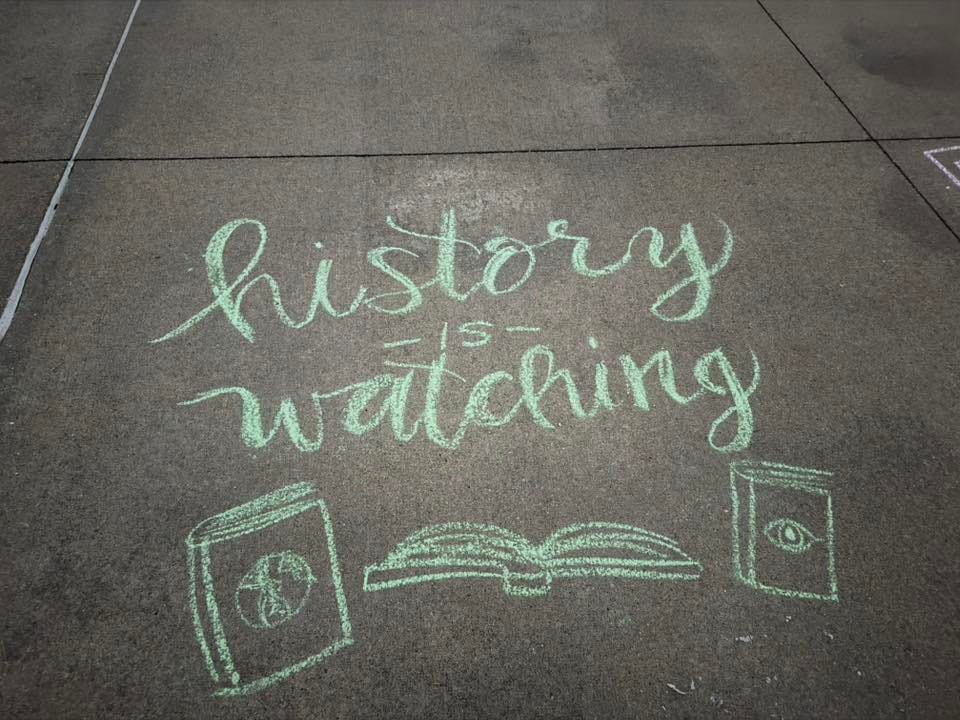 history
- is -
watching